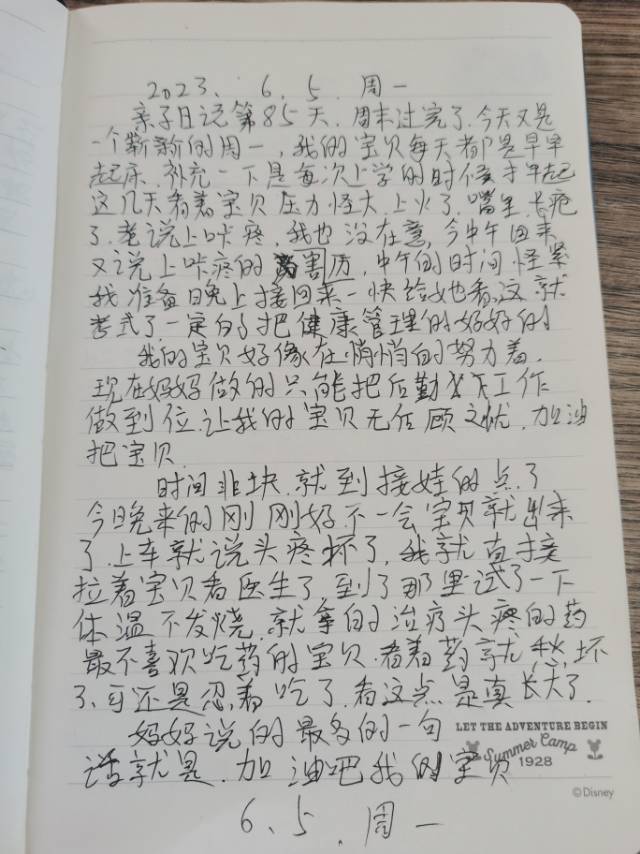 2023、6.5.周一
亲子日记第85天.周末过完了.今天又是
一个崭新的周一,我的宝贝每天都是早早
起床.补充一下是每次上学的时候才早起
这几天看着宝贝压力怪大.上火了.嘴里长疱
了.老说上咔疼,我也没在意,今中午回来
又说上咔疼的害厉,中午的时间怪紧
我准备晚上接回来一快给她看.这就
考式了一定的把健康管理的好好的
我的宝贝好像在悄悄的努力着.
现在妈妈做的只能把后勤工作
做到位.让我的宝贝无后顾之忧.加油
把宝贝
时间非块.就到接娃的点了
今晚来的刚刚好不一会宝贝就出来
了.上车就说头疼坏了,我就直接
拉着宝贝看医生了.到了那里试了一下
体温不发烧.就拿的治疗头疼的药
最不喜欢吃药的宝贝.看着药就愁坏
了.可还是忍着吃了.看这点是真长大了.
妈妈说的最多的一句
话就是.加油吧我的宝贝
LET THE ADVENTURE BEGIN
Summer Camp
1928
©Disney
6、5.周一